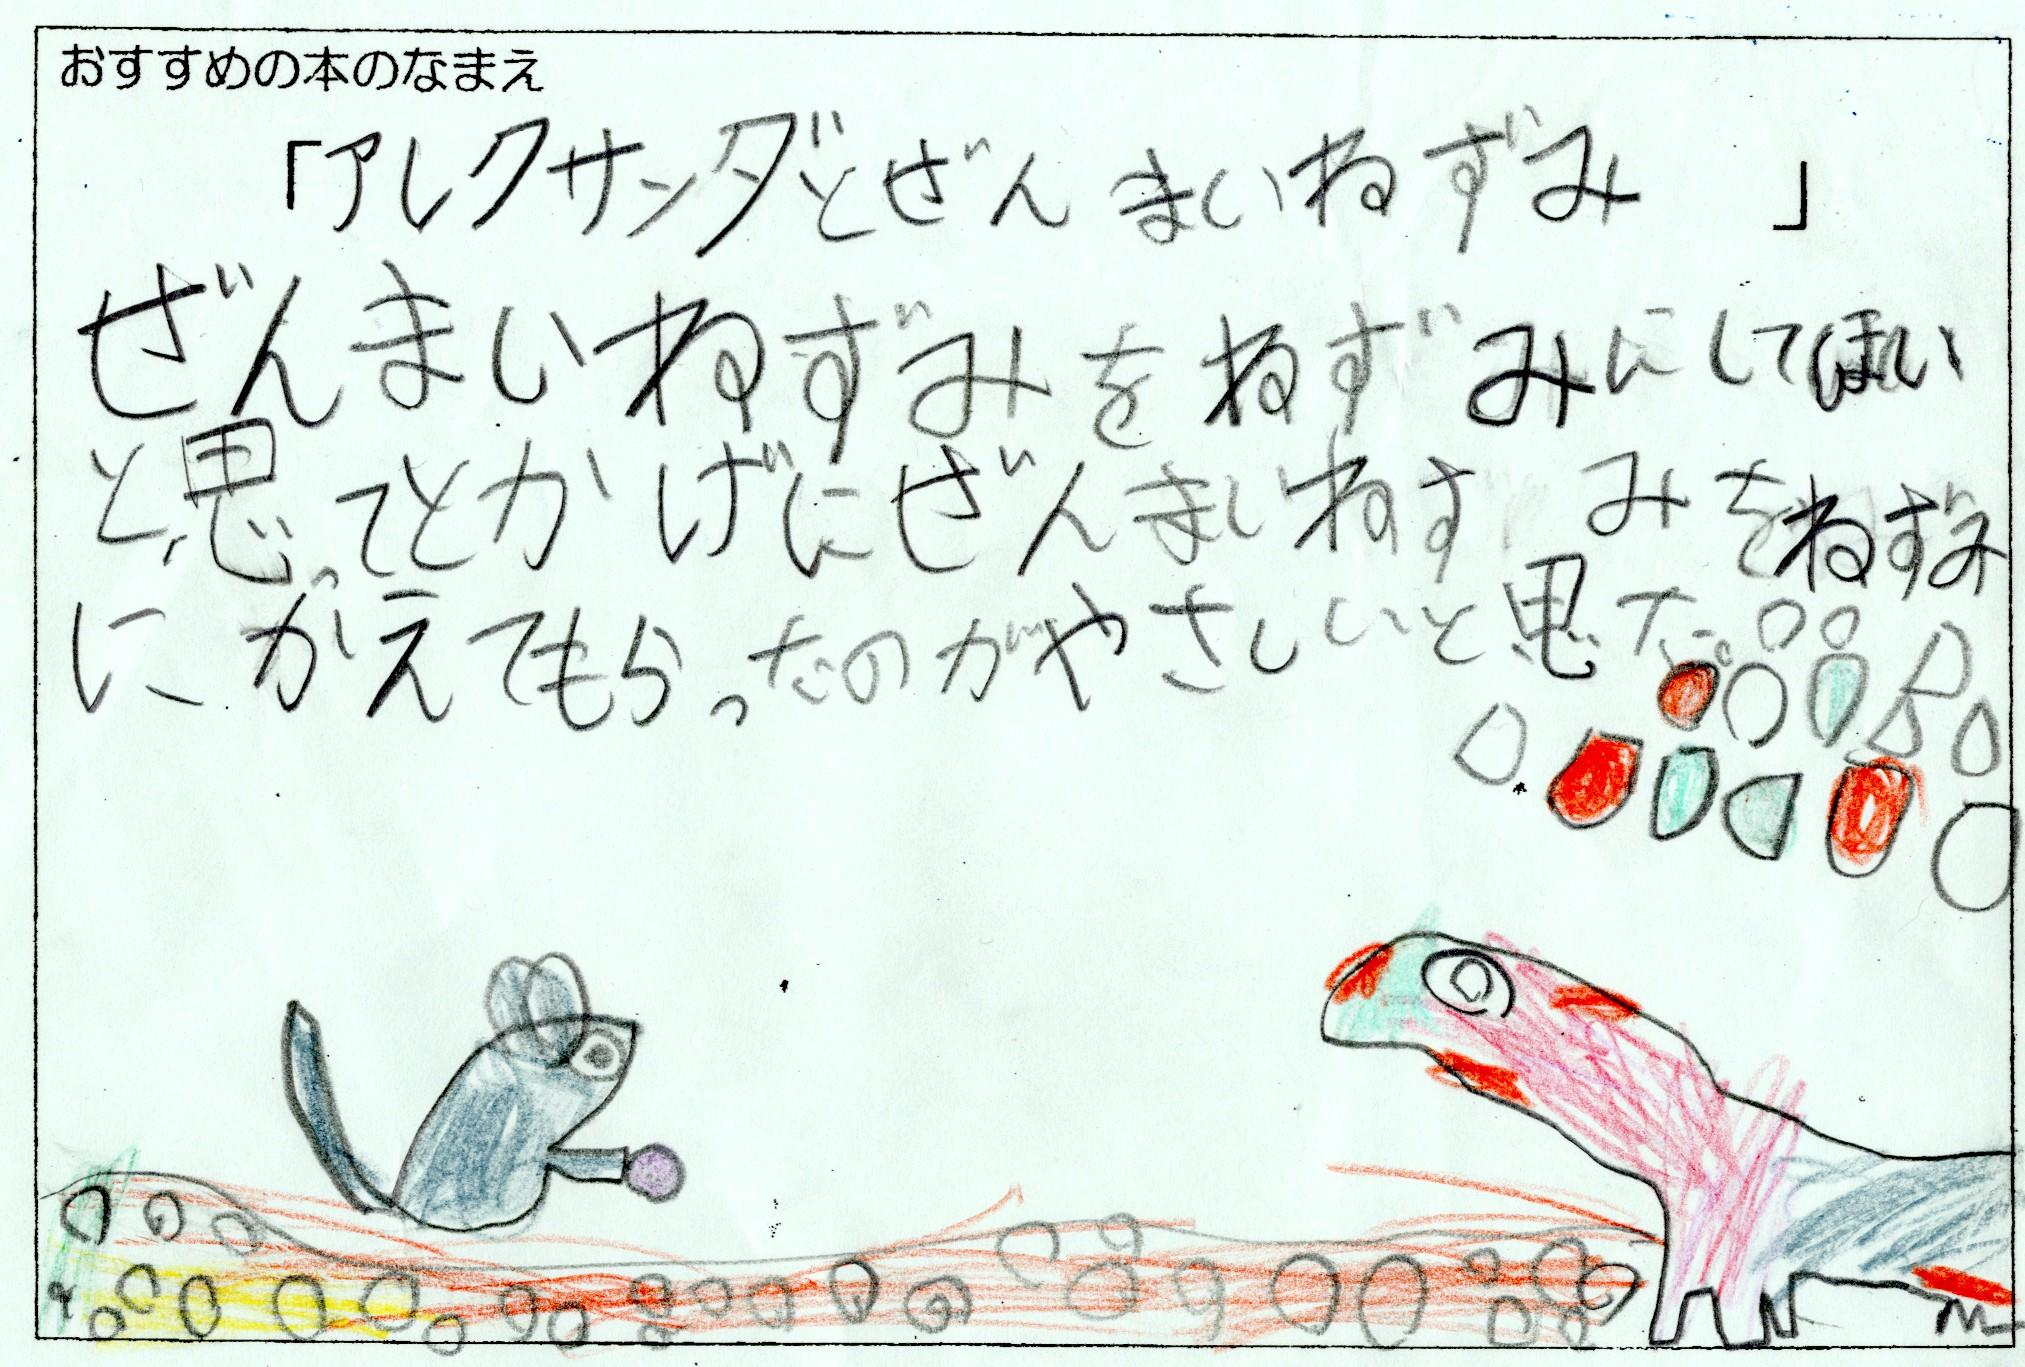 おすすめの本のなまえ
「アレクサンダとぜんまいねずみ」
ぜんまいねずみをねずみにしてほしい
と思ってとかげにぜんまいねずみをねずみ
にかえてもらったのがやさしいと思た。